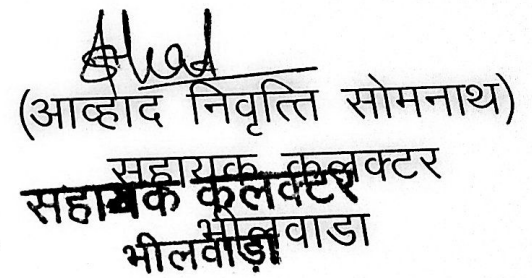 (आव्हाद निवृत्ति सोमनाथ)
सहायक कलक्टर
सहायक कलक्टर
भीलवाडा
भीलवाड़ा